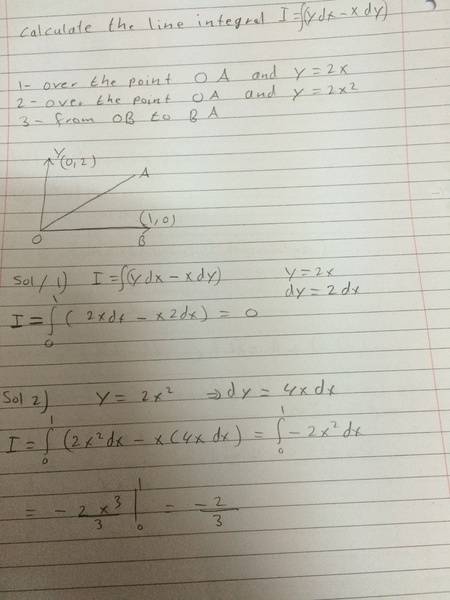 Calculate the line integral I=∫(ydx-xdy)
1- over the point OA and y=2x
2- over the point OA and y=2x2
3- from OB to BA
Y(0,2)
A
(1,0)
O
B
Sol/ 1) I=∫(ydx-xdy) y=2x
dy=2dx
I=∫₀¹(2xdx-x2dx)=0
Sol 2) y=2x² ⇒dy=4xdx
I=∫₀¹(2x²dx-x(4xdx)=∫₀¹-2x²dx
= -2x³/3 |₀¹ = -2/3